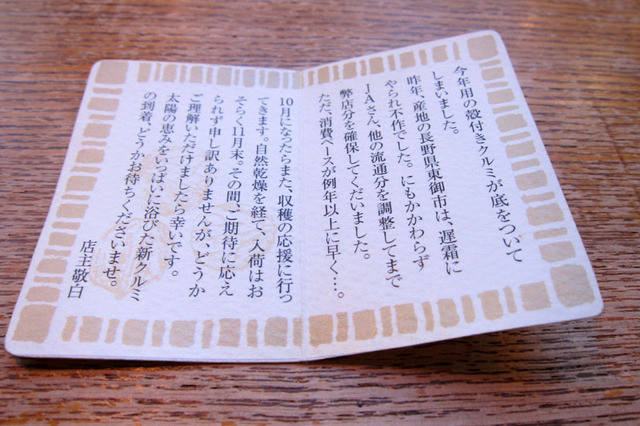 今年用の殻付きクルミが底をついて
しまいました。
昨年、産地の長野県東御市は、遅霜に
やられ不作でした。にもかかわらず
JAさん、他の流通分を調整してまで
弊店分を確保してくだいました。
ただ、消費ペースが例年以上に早く…。
10月になったらまた、収穫の応援に行っ
てきます。自然乾燥を経て、入荷はお
そらく11月末。その間、ご期待に応え
られず申し訳ありませんが、どうか
ご理解いただけましたら幸いです。
太陽の恵みをいっぱいに浴びた新クルミ
の到着、どうかお待ちくださいませ。
店主敬白